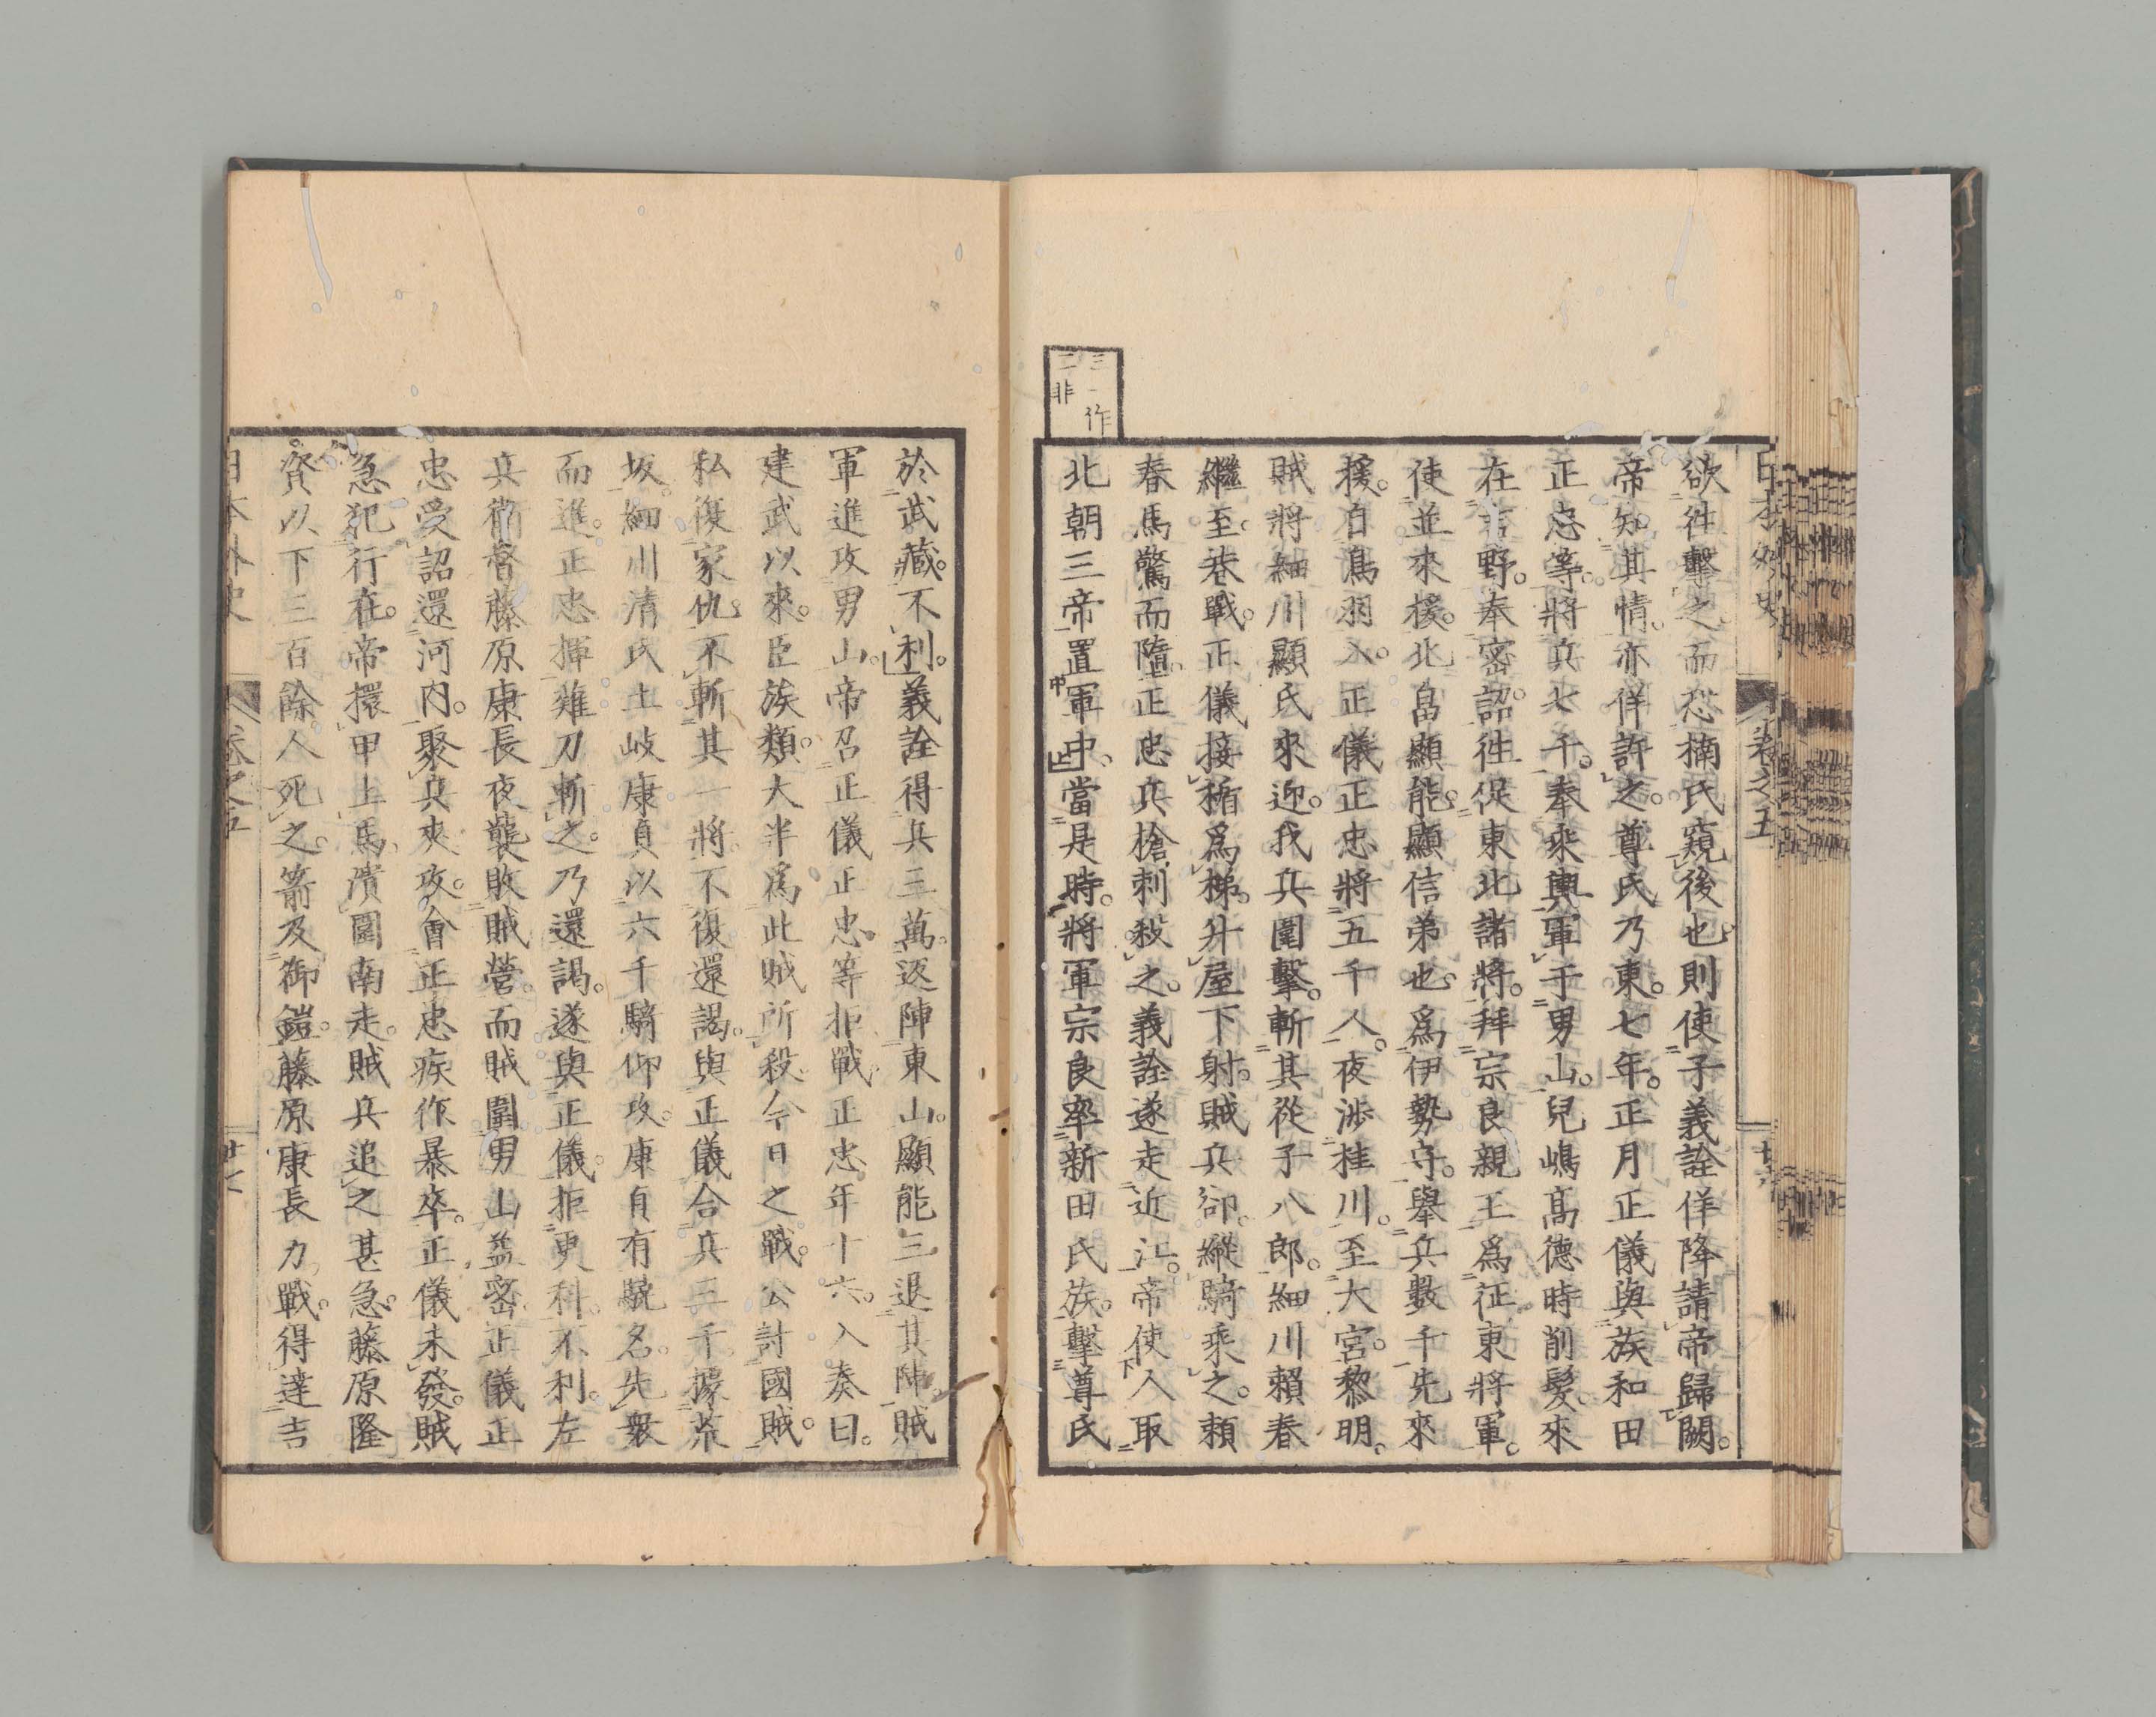 三一作
二非
欲往擊之。而恐楠氏窺後也。則使子義詮佯降請帝歸闕。
帝知其情。亦佯許之。尊氏乃東。七年。正月正儀與族和田
正忠等。將兵七千。奉乘輿軍于男山。兒嶋高德時削髮。來
在吉野。奉密詔。往促東北諸將。拜宗良親王爲征東將軍。
使並來援。北畠顯能。顯信弟也。爲伊勢守。舉兵數千先來
援。自鳥羽入。正儀正忠將五千人。夜渉桂川。至大宮。黎明。
賊將細川顯氏來迎。我兵圍擊。斬其從子八郎。細川賴春
繼至。巷戰。正儀接楯爲梯。升屋下射。賊兵卻。縱騎乘之。賴
春馬驚而墮。正忠兵槍刺殺之。義詮遂走近江。帝使人取
北朝三帝置軍中。當是時。將軍宗良率新田氏族。擊尊氏
卷之五
於武藏。不利。義詮得兵三萬。返陣東山。顯能三退其陣。賊
軍進攻男山。帝召正儀正忠。等拒戰。正忠年十六。入奏曰。
建武以來。臣族類。大半爲此賊所殺。今日之戰。公討國賊。
私復家仇。不斬其一將。不復還謁。與正儀合兵三千據荒
坂。細川清氏土岐康貞以六千騎仰攻。康貞有驍名。先衆
而進。正忠揮薙刀斬之。乃還謁。遂與正儀。拒更科。不利。左
兵衛督藤原康長夜襲敗賊營。而賊圍男山益密。正儀正
忠受詔還河内。聚兵夾攻。會正忠疾作暴卒。正儀未發。賊
急犯行在。帝擐甲上馬。潰圍南走。賊兵追之甚急。藤原隆
資以下三百餘人死之。箭及御鎧。藤原康長力戰。得達吉
日本外史